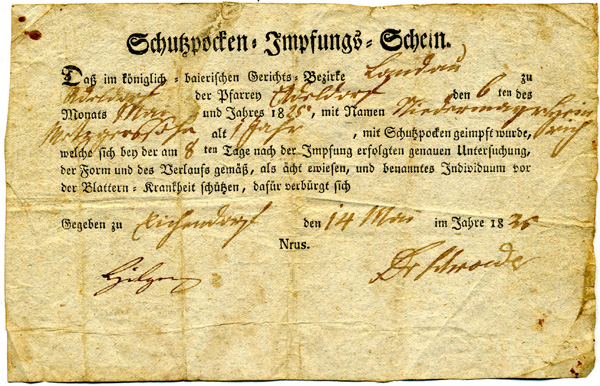 Schutzpocken-Impfungs-Schein.
Daß im königlich-baierischen Gerichts-Bezirke Landau zu
Adeldorf der Pfarrey Adeldorf den 6 ten des
Monats Mai und Jahres 1825, mit Namen Niedermayer Hein
rich
alt 1 Jahr, mit Schutzpocken geimpft wurde,
welche sich bey der am 8 ten Tage nach der Impfung erfolgten genauen Untersuchung,
der Form und des Verlaufs gemäß, als ächt ewiesen, und benanntes Individuum vor
der Blattern-Krankheit schützen, dafür verbürgt sich
Gegeben zu Eichendorf den 14 Mai im Jahre 1825
Nrus.